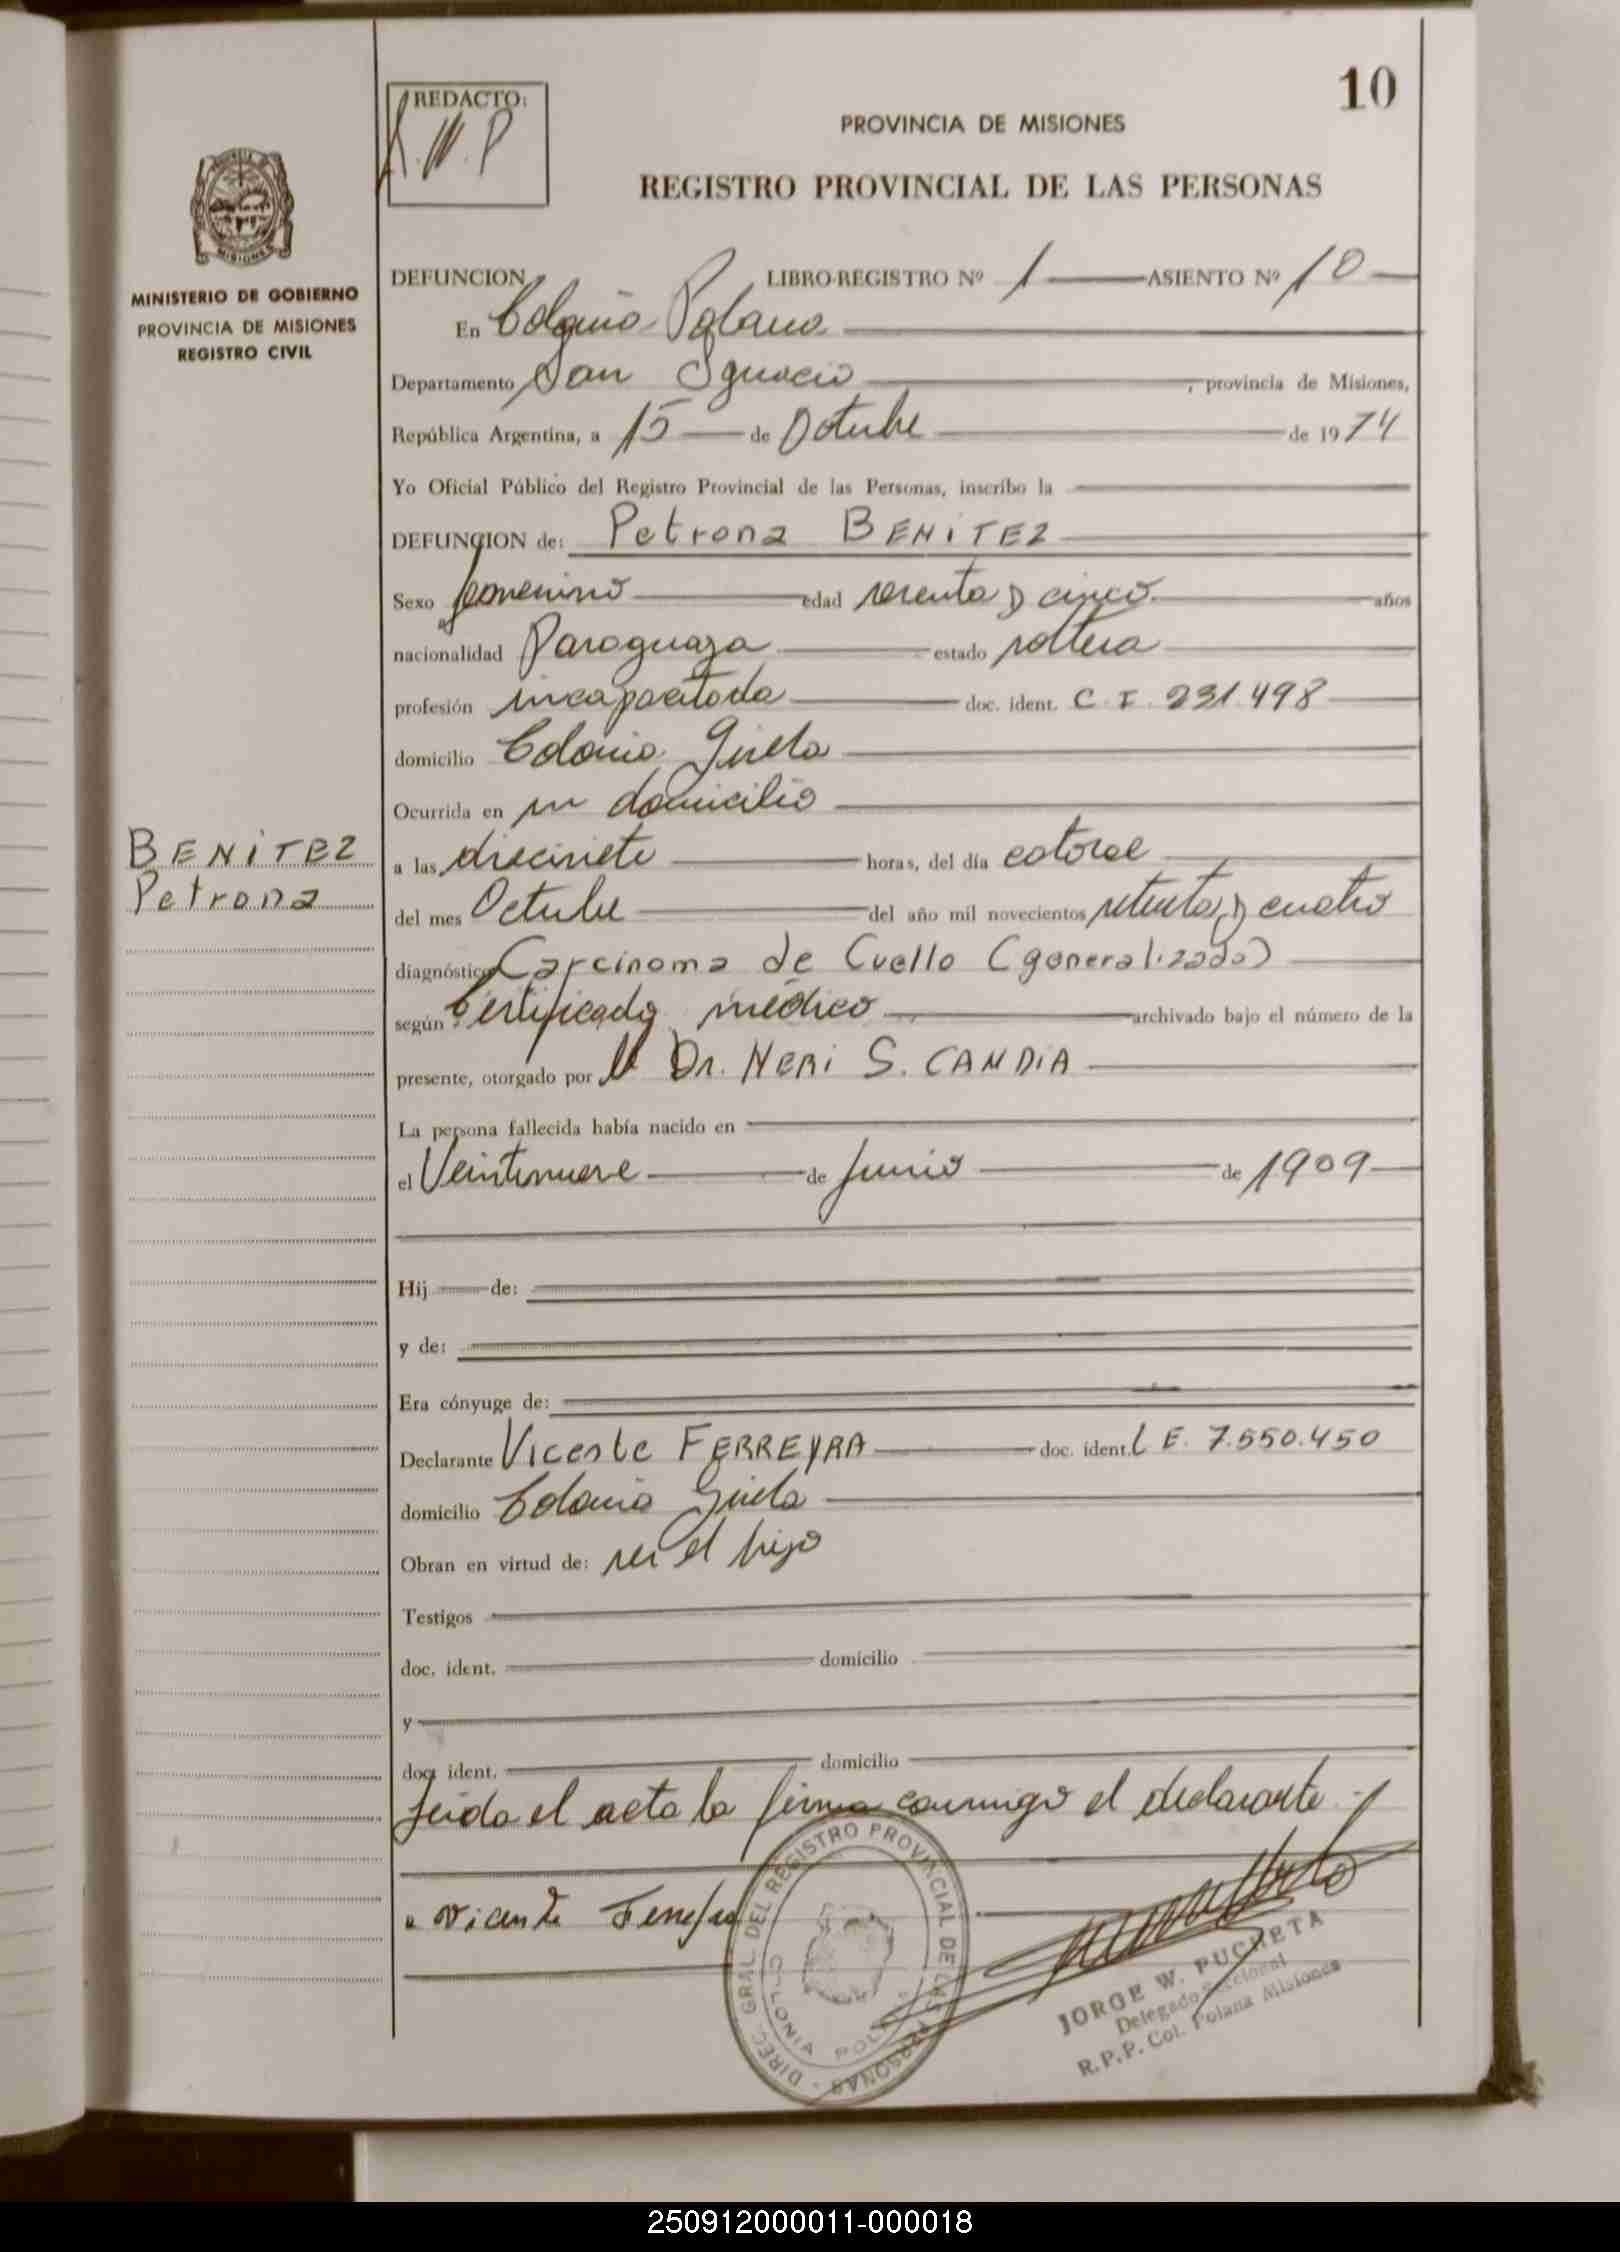 10
REDACTO:
PROVINCIA DE MISIONES
REGISTRO PROVINCIAL DE LAS PERSONAS
MINISTERIO DE GOBIERNO
PROVINCIA DE MISIONES
REGISTRO CIVIL
DEFUNCION LIBRO-REGISTRO Nº 1 ASIENTO Nº 10
En Colonia Polana
Departamento San Ignacio, provincia de Misiones,
República Argentina, a 15 de Octubre de 1974
Yo Oficial Público del Registro Provincial de las Personas, inscribo la
DEFUNCION de: Petrona BENITEZ
Sexo femenino edad sesenta y cinco años
nacionalidad Paraguaya estado soltera
profesión incapacitada doc. ident. C.I. 231.498
domicilio Colonia Gisela
Ocurrida en su domicilio
BENITEZ
Petrona
a las diecisiete horas, del día catorce
del mes Octubre del año mil novecientos setenta y cuatro
diagnóstico Carcinoma de Cuello (generalizado)
según Certificado médico archivado bajo el número de la
presente, otorgado por el Dr. NERI S. CANDIA
La persona fallecida había nacido en
el Veintinueve de Junio de 1909
Hij de:
y de:
Era cónyuge de:
Declarante Vicente FERREYRA doc. ident. L E. 7.550.450
domicilio Colonia Gisela
Obran en virtud de: ser el hijo
Testigos
doc. ident. domicilio
y
doc. ident. domicilio
Leída el acta la firma conmigo el declarante.-
DIREC. GRAL. DEL REGISTRO PROVINCIAL DE LAS PERSONAS -
COLONIA POLANA
JORGE W. PUCHETA
Delegado Seccional
R.P.P. Col. Polana Misiones
250912000011-000018